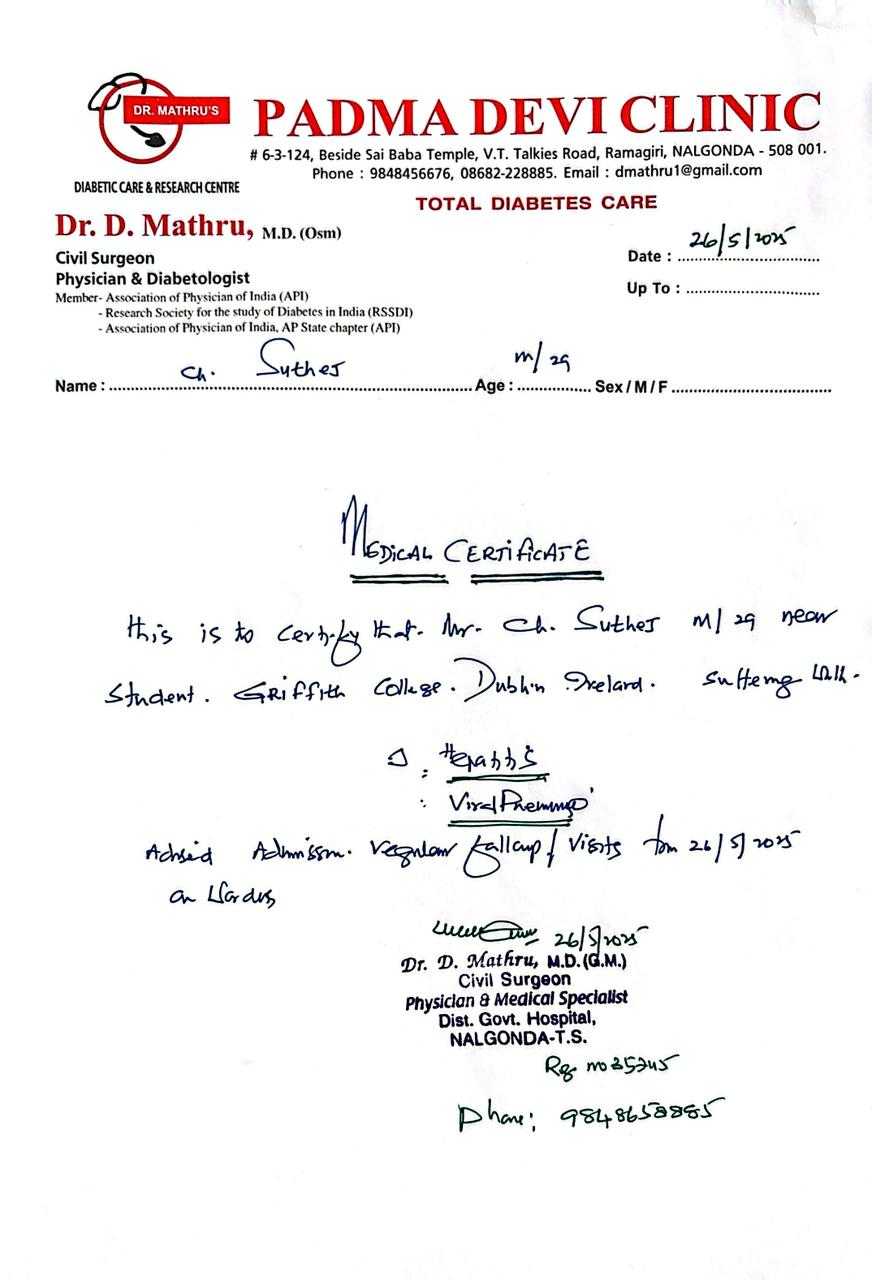 DR. MATHRU'S
DIABETIC CARE & RESEARCH CENTRE
PADMA DEVI CLINIC
# 6-3-124, Beside Sai Baba Temple, V.T. Talkies Road, Ramagiri, NALGONDA - 508 001.
Phone : 9848456676, 08682-228885. Email : dmathru1@gmail.com
TOTAL DIABETES CARE
Dr. D. Mathru, M.D. (Osm)
Civil Surgeon
Physician & Diabetologist
Member- Association of Physician of India (API)
- Research Society for the study of Diabetes in India (RSSDI)
- Association of Physician of India, AP State chapter (API)
Date : 26/5/2025
Up To :
Name : Ch. Suthes Age : M/29 Sex / M / F
MEDICAL CERTIFICATE
this is to certify that Mr. Ch. Suthes M/29 near
Student. Griffith College. Dublin Ireland. suffering with.
: Hepatitis
: Viral
Admission. regular visits from 26/5/2025
26/5/2025
Dr. D. Mathru, M.D. (G.M.)
Civil Surgeon
Physician & Medical Specialist
Dist. Govt. Hospital,
NALGONDA-T.S.
Reg no
Phone: 9848658885